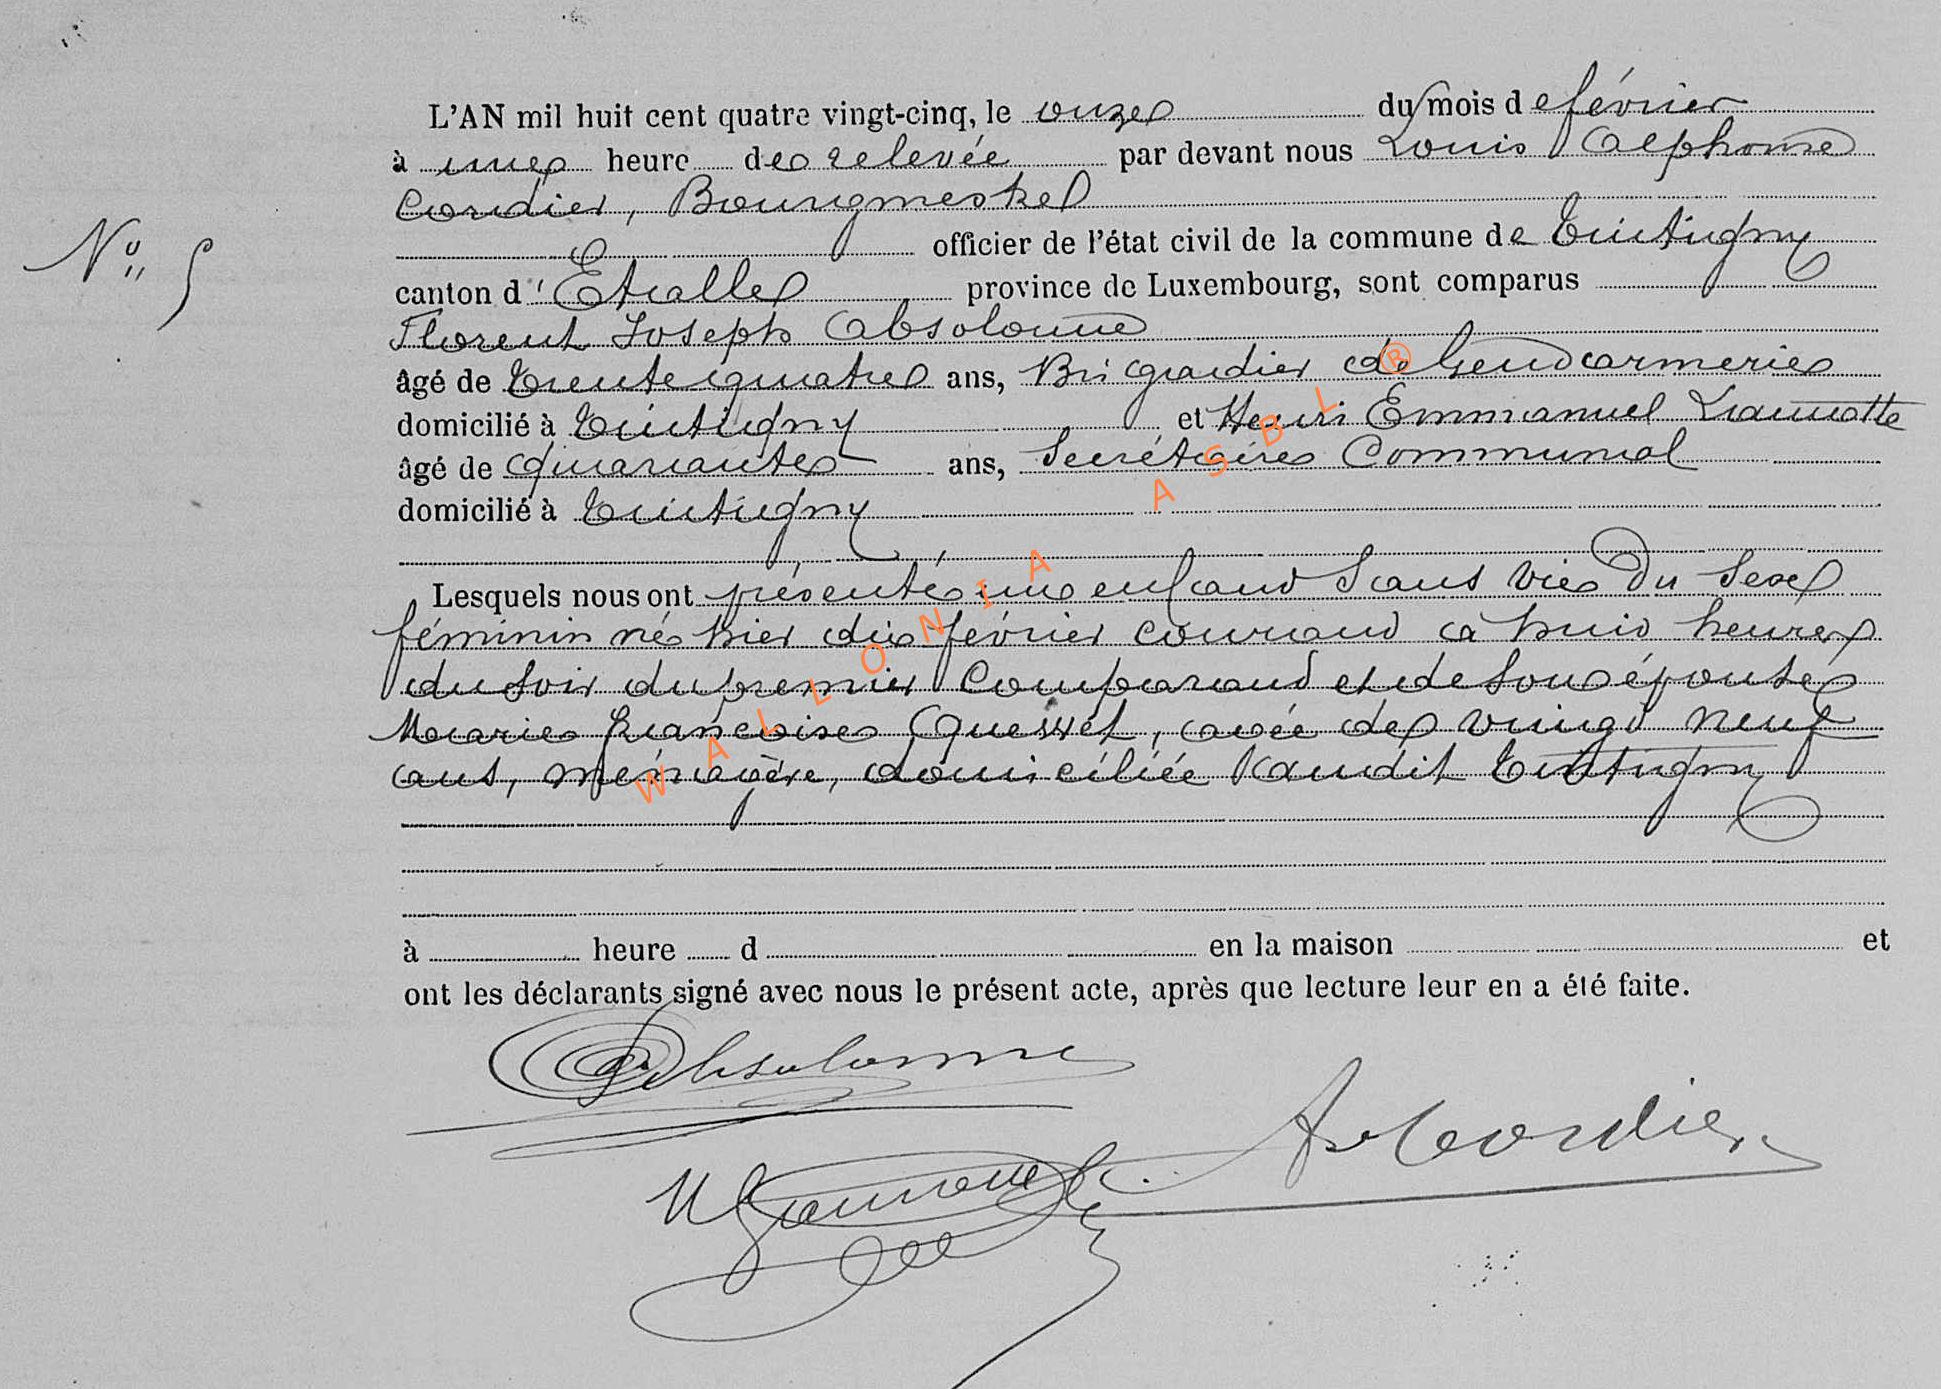 L'AN mil huit cent quatre vingt-cinq, le onze du mois de février
à une heure de relevée par devant nous Louis Alphonse
Cordier, Bourgmestre
officier de l'état civil de la commune de Tintigny
N° 5
canton d'Etalle province de Luxembourg, sont comparus
Florent Joseph Absolonne
âgé de trente quatre ans, Brigadier de Gendarmerie
domicilié à Tintigny et Henri Emmanuel Lamotte
âgé de quarante ans, Secrétaire Communal
domicilié à Tintigny
Lesquels nous ont présenté un enfant Sans vie du Sexe
féminin né hier dix février courant à huit heures
du soir du premier Comparant et de son épouse
Marie Françoise, agée de vingt neuf
ans, ménagère, domiciliée audit Tintigny
à heure d en la maison et
ont les déclarants signé avec nous le présent acte, après que lecture leur en a été faite.
Absolonne
A Cordier
WALLONIA ASBL ®